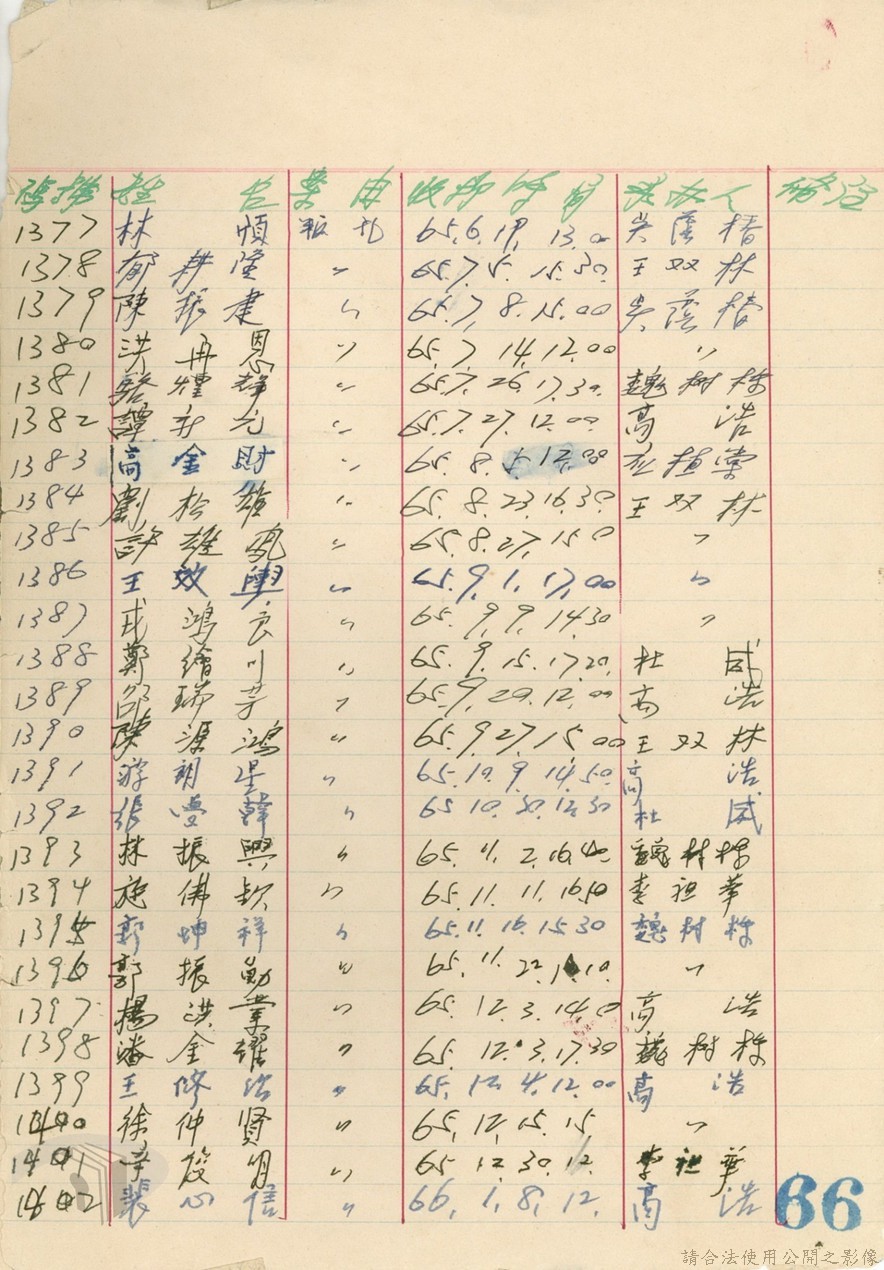 號碼 姓名 案由 收押時間 承办人 备註
1377 林 順 叛乱 65.6.19.13.00 吳蔭椿
1378 郁 隆 〃 65.7.5.15.30. 王双林
1379 陳振建 〃 65.7.8.15.00 吳蔭椿
1380 洪再恩 〃 65.7.14.12.00 〃
1381 煌 〃 65.7.26.17.30. 魏树株
1382 譚 元 〃 65.7.27.12.00 高 浩
1383 高金財 〃 65.8.5.12.00
1384 劉松雄 〃 65.8.23.16.30 王双林
1385 許雄 〃 65.8.27.150 〃
1386 王效輿 〃 65.9.1.17.00 〃
1387 戎鴻良 〃 65.9.9.14.30 〃
1388 鄭繪川 〃 65.9.15.17.20. 杜 威
1389 邵瑞芳 〃 65.9.20.12.00 高 浩
1390 陳源鴻 〃 65.9.27.15.00 王双林
1391 游朝星 〃 65.10.9.14.50. 高 浩
1392 張 韓 〃 65.10.30.12.30 杜 威
1393 林振興 〃 65.11.2.16.40 魏树株
1394 施佛欽 〃 65.11.11.16.50 李祖華
1395 郭坤祥 〃 65.11.16.15.30 魏树株
1396 郭振勳 〃 65.11.22. .10. 〃
1397 楊洪業 〃 65.12.3.14.0 高 浩
1398 潘金耀 〃 65.12.3.17.30 魏树株
1399 王修 〃 65.12.4.12.00 高 浩
1400 徐仲賢 〃 65.12.15.15 〃
1401 李俊月 〃 65.12.30.12. 李祖華
1402 裴心信 〃 66.1.8.12. 高 浩
66
請合法使用公開之影像